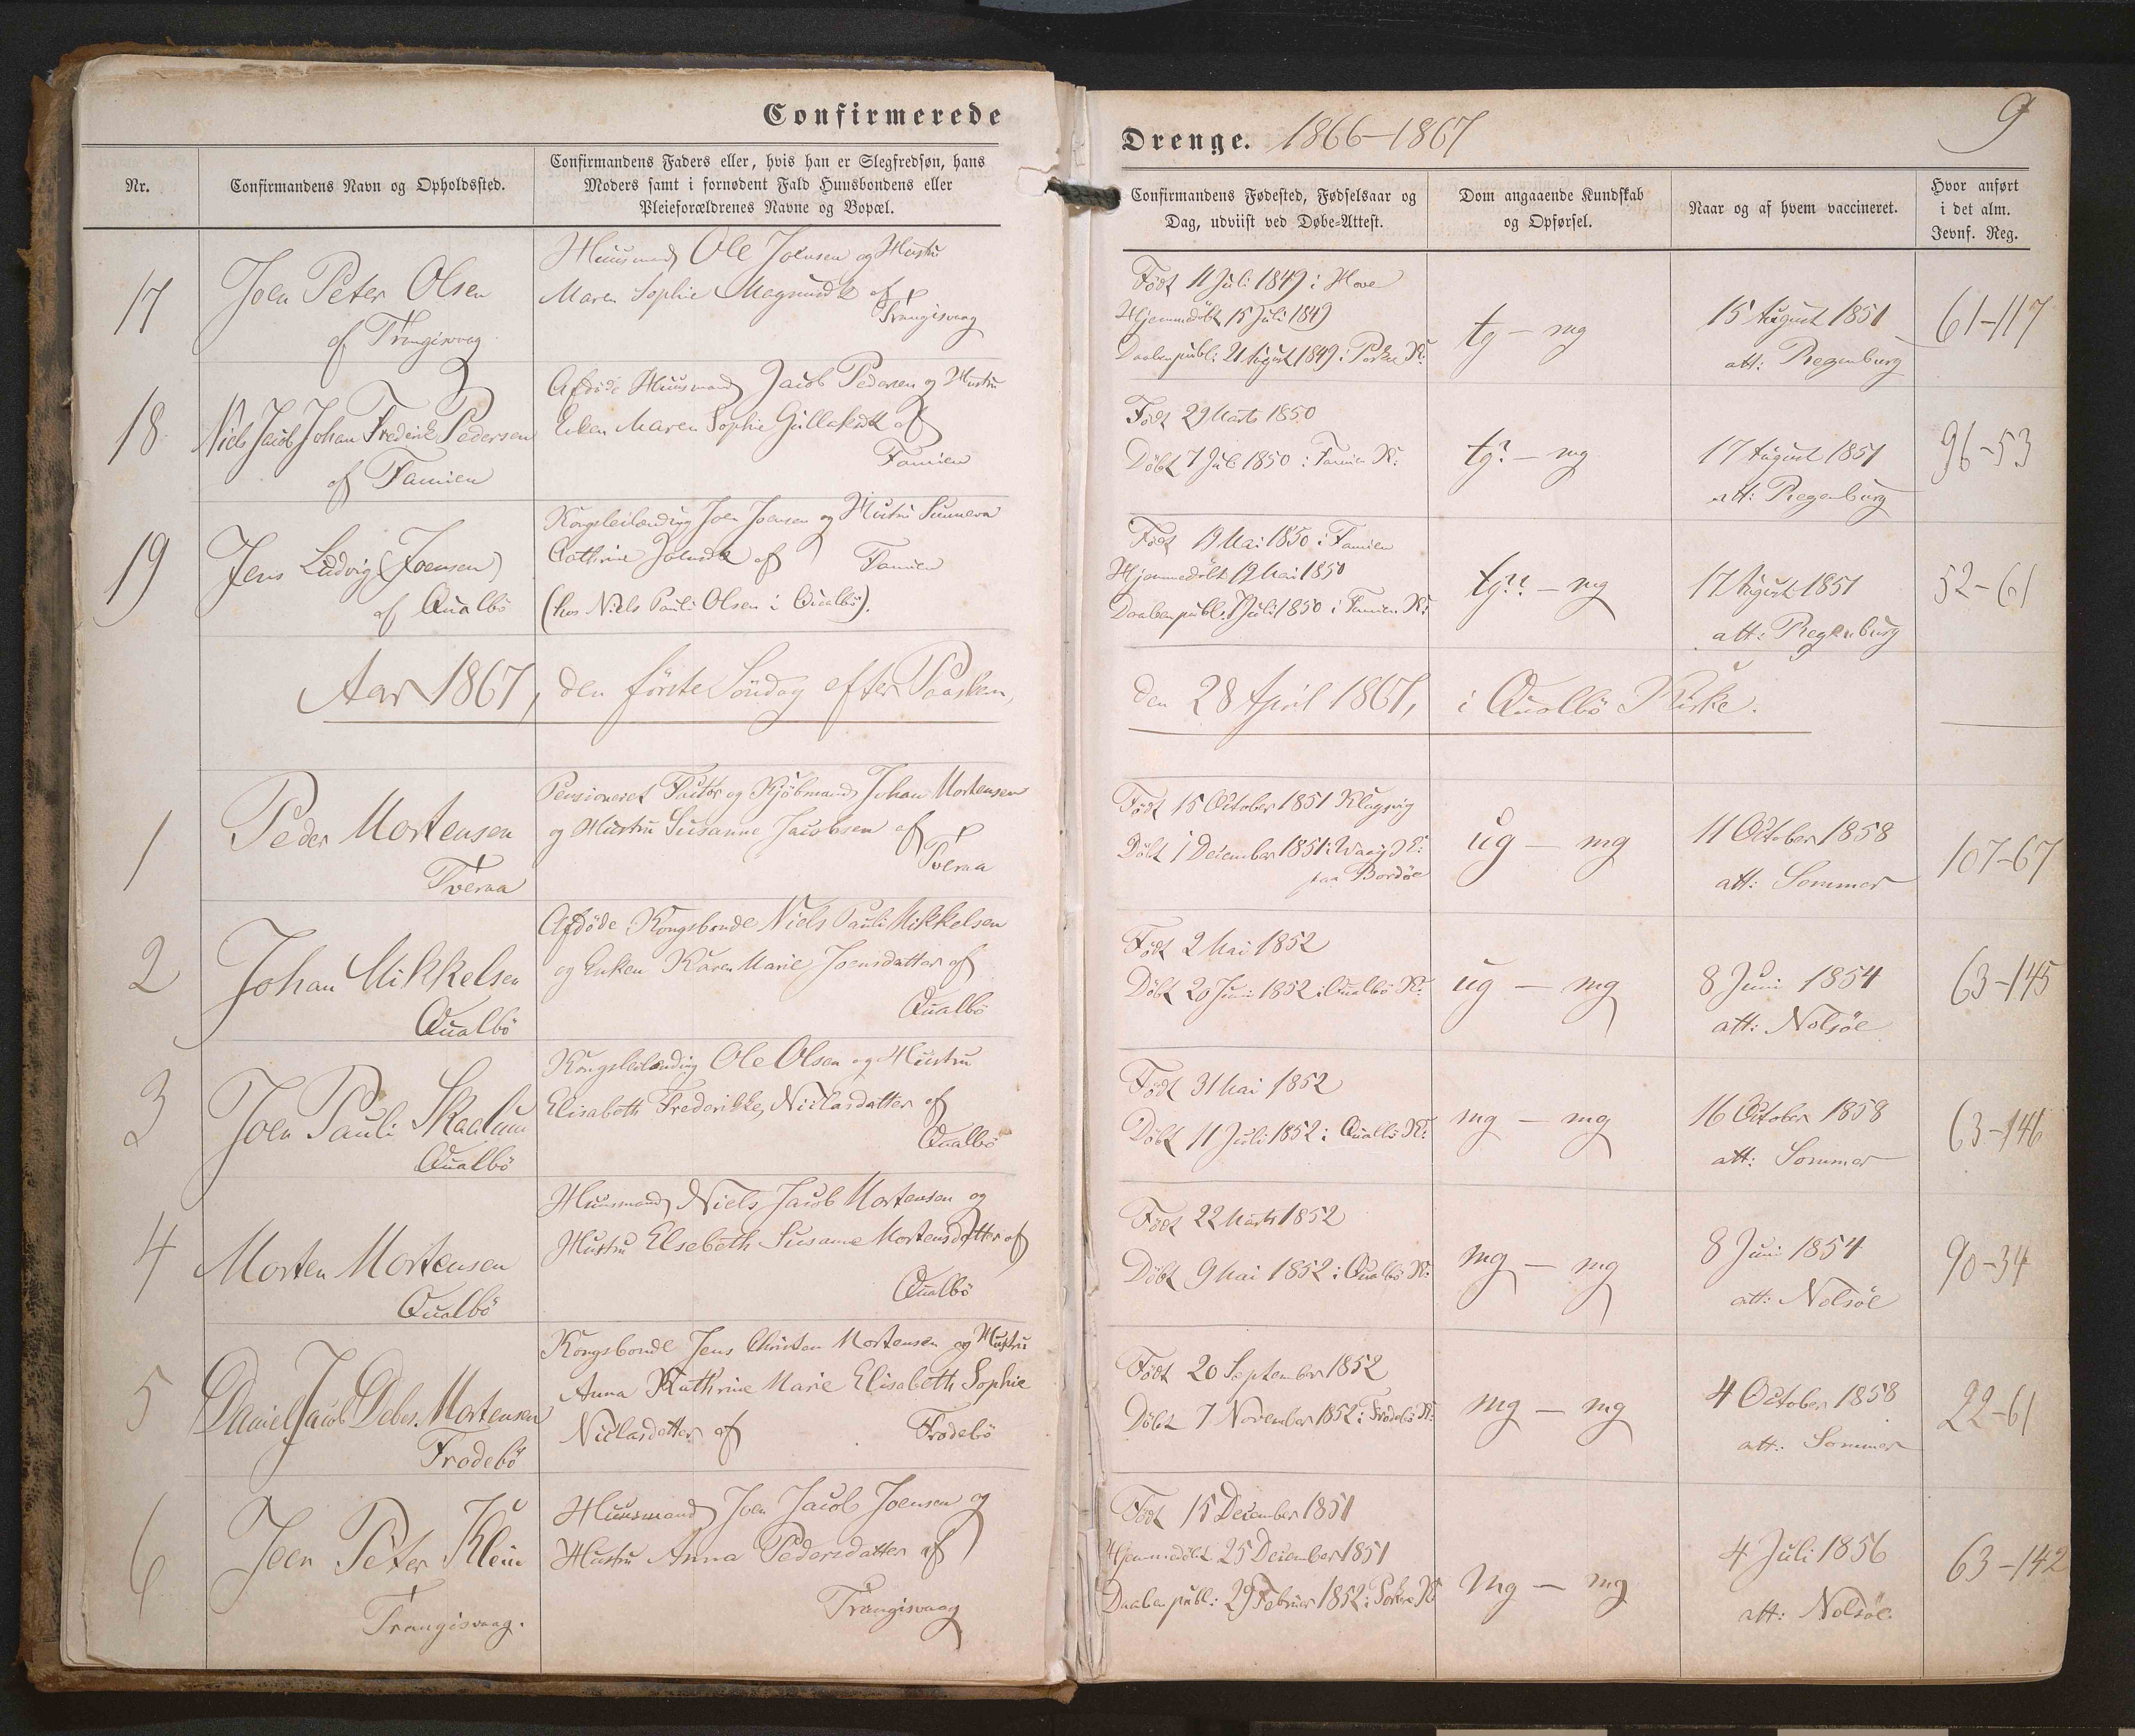 Confirmerede
Nr.
Confirmandens Navn og Opholdssted.
Confirmandens Faders eller, hvis han er Slegfredsøn, hans
Moders samt i fornødent Fald Huusbondens eller
Pleieforældrenes Navne og Bopæl.
17
Joen Peter Olsen
af Trangisvaag
Huusmand Ole Joensen og Hustru
Maren Sophie Magnusdtr af
Trangisvaag
18
Niels Jacob Johan Frederik Pedersen
af Famien
Afdøde Huusmand Jacob Pedersen og Hustru
Enken Maren Sophie af
Famien
19
Jens Ludvig (Joensen)
af Qualbö
Kongsleilænding Joen Joensen og Hustru Sunneva
Cathrine af Famien
(hos Niels Pauli Olsen i Qualbö).
Aar 1867, den første Söndag efter Paasken,
1
Peder Mortensen
Tveraa
Pensioneret Factor og Kjöbmand Johan Mortensen
og Hustru Susanne Jacobsen af
Tveraa
2
Johan Mikkelsen
Qualbö
Afdöde Kongsbonde Niels Pauli Mikkelsen
og Enken Karen Marie Joensdatter af
Qualbö
3
Joen Pauli Skaalum
Qualbö
Kongsleilænding Ole Olsen og Hustru
Elisabeth Frederikke Niclasdatter af
Qualbö
4
Morten Mortensen
Qualbö
Huusmand Niels Jacob Mortensen og
Hustru Elsebeth Susanne Mortensdatter af
Qualbö
5
Daniel Jacob Debes Mortensen
Frodebö
Kongsbonde Jens Christen Mortensen og Hustru
Anna Kathrine Marie Elisabeth Sophie
Niclasdatter af Frodebö
6
Joen Peter Klein
Trangisvaag.
Huusmand Joen Jacob Joensen og
Hustru Anna Pedersdatter af
Trangisvaag
9
Drenge. 1866-1867
Confirmandens Fødested, Fødselsaar og
Dag, udviist ved Døbe-Attest.
Dom angaaende Kundskab
og Opførsel.
Naar og af hvem vaccineret.
Hvor anført
i det alm.
Jevnf. Reg.
Født 11 Juli 1849 i Hove
Hjemmedöbt 15 Juli 1849
Daaben publ: 21 August 1849 i Porkere K:
tg - mg
15 August 1851
att: Regenburg
61-117
Født 29 Marts 1850
Döbt 7 Juli 1850 i Famien K:
tg? - mg
17 August 1851
att: Regenburg
96-53
Født 19 Mai 1850 i Famien
Hjemmedöbt 19 Mai 1850
Daaben publ. 7 Juli 1850 i Famien K:
tg?? - mg
17 August 1851
att: Regenburg
52-61
den 28 April 1867, i Qualbö Kirke.
Født 15 October 1851 Klagsvig
Döbt 1 December 1851 i Waag K:
paa Bordöe
ug - mg
11 October 1858
att: Sommer
107-67
Født 2 Mai 1852
Döbt 20 Juni 1852 i Qualbö K:
ug - mg
8 Juni 1854
att: Nolsöe
63-145
Født 31 Mai 1852
Döbt 11 Juli 1852 i Qualbö K:
mg - mg
16 October 1858
att: Sommer
63-146
Født 22 Marts 1852
Döbt 9 Mai 1852 i Qualbö K:
mg - mg
8 Juni 1854
att: Nolsöe
90-34
Født 20 September 1852
Döbt 7 November 1852 i Frodebö K:
mg - mg
4 October 1858
att: Sommer
22-61
Født 15 December 1851
Hjemmedöbt 25 December 1851
Daaben publ: 29 Februar 1852 i Porkere K
mg - mg
4 Juli 1856
att: Nolsöe
63-142